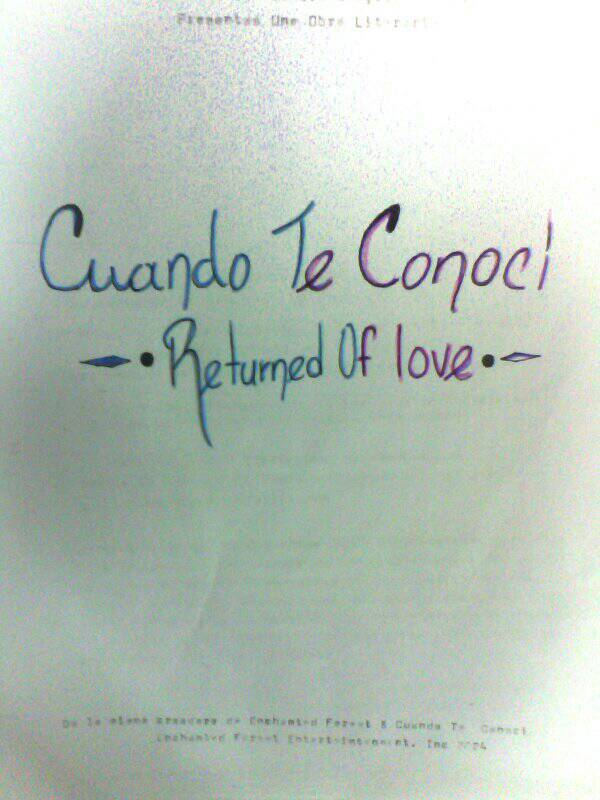 Presentas Una Obra
Cuando Te Conoci
Returned Of love
De la misma creadora de Enchanted Forest & Cuando Te Conoci
Enchanted Forest Entertainment. Inc